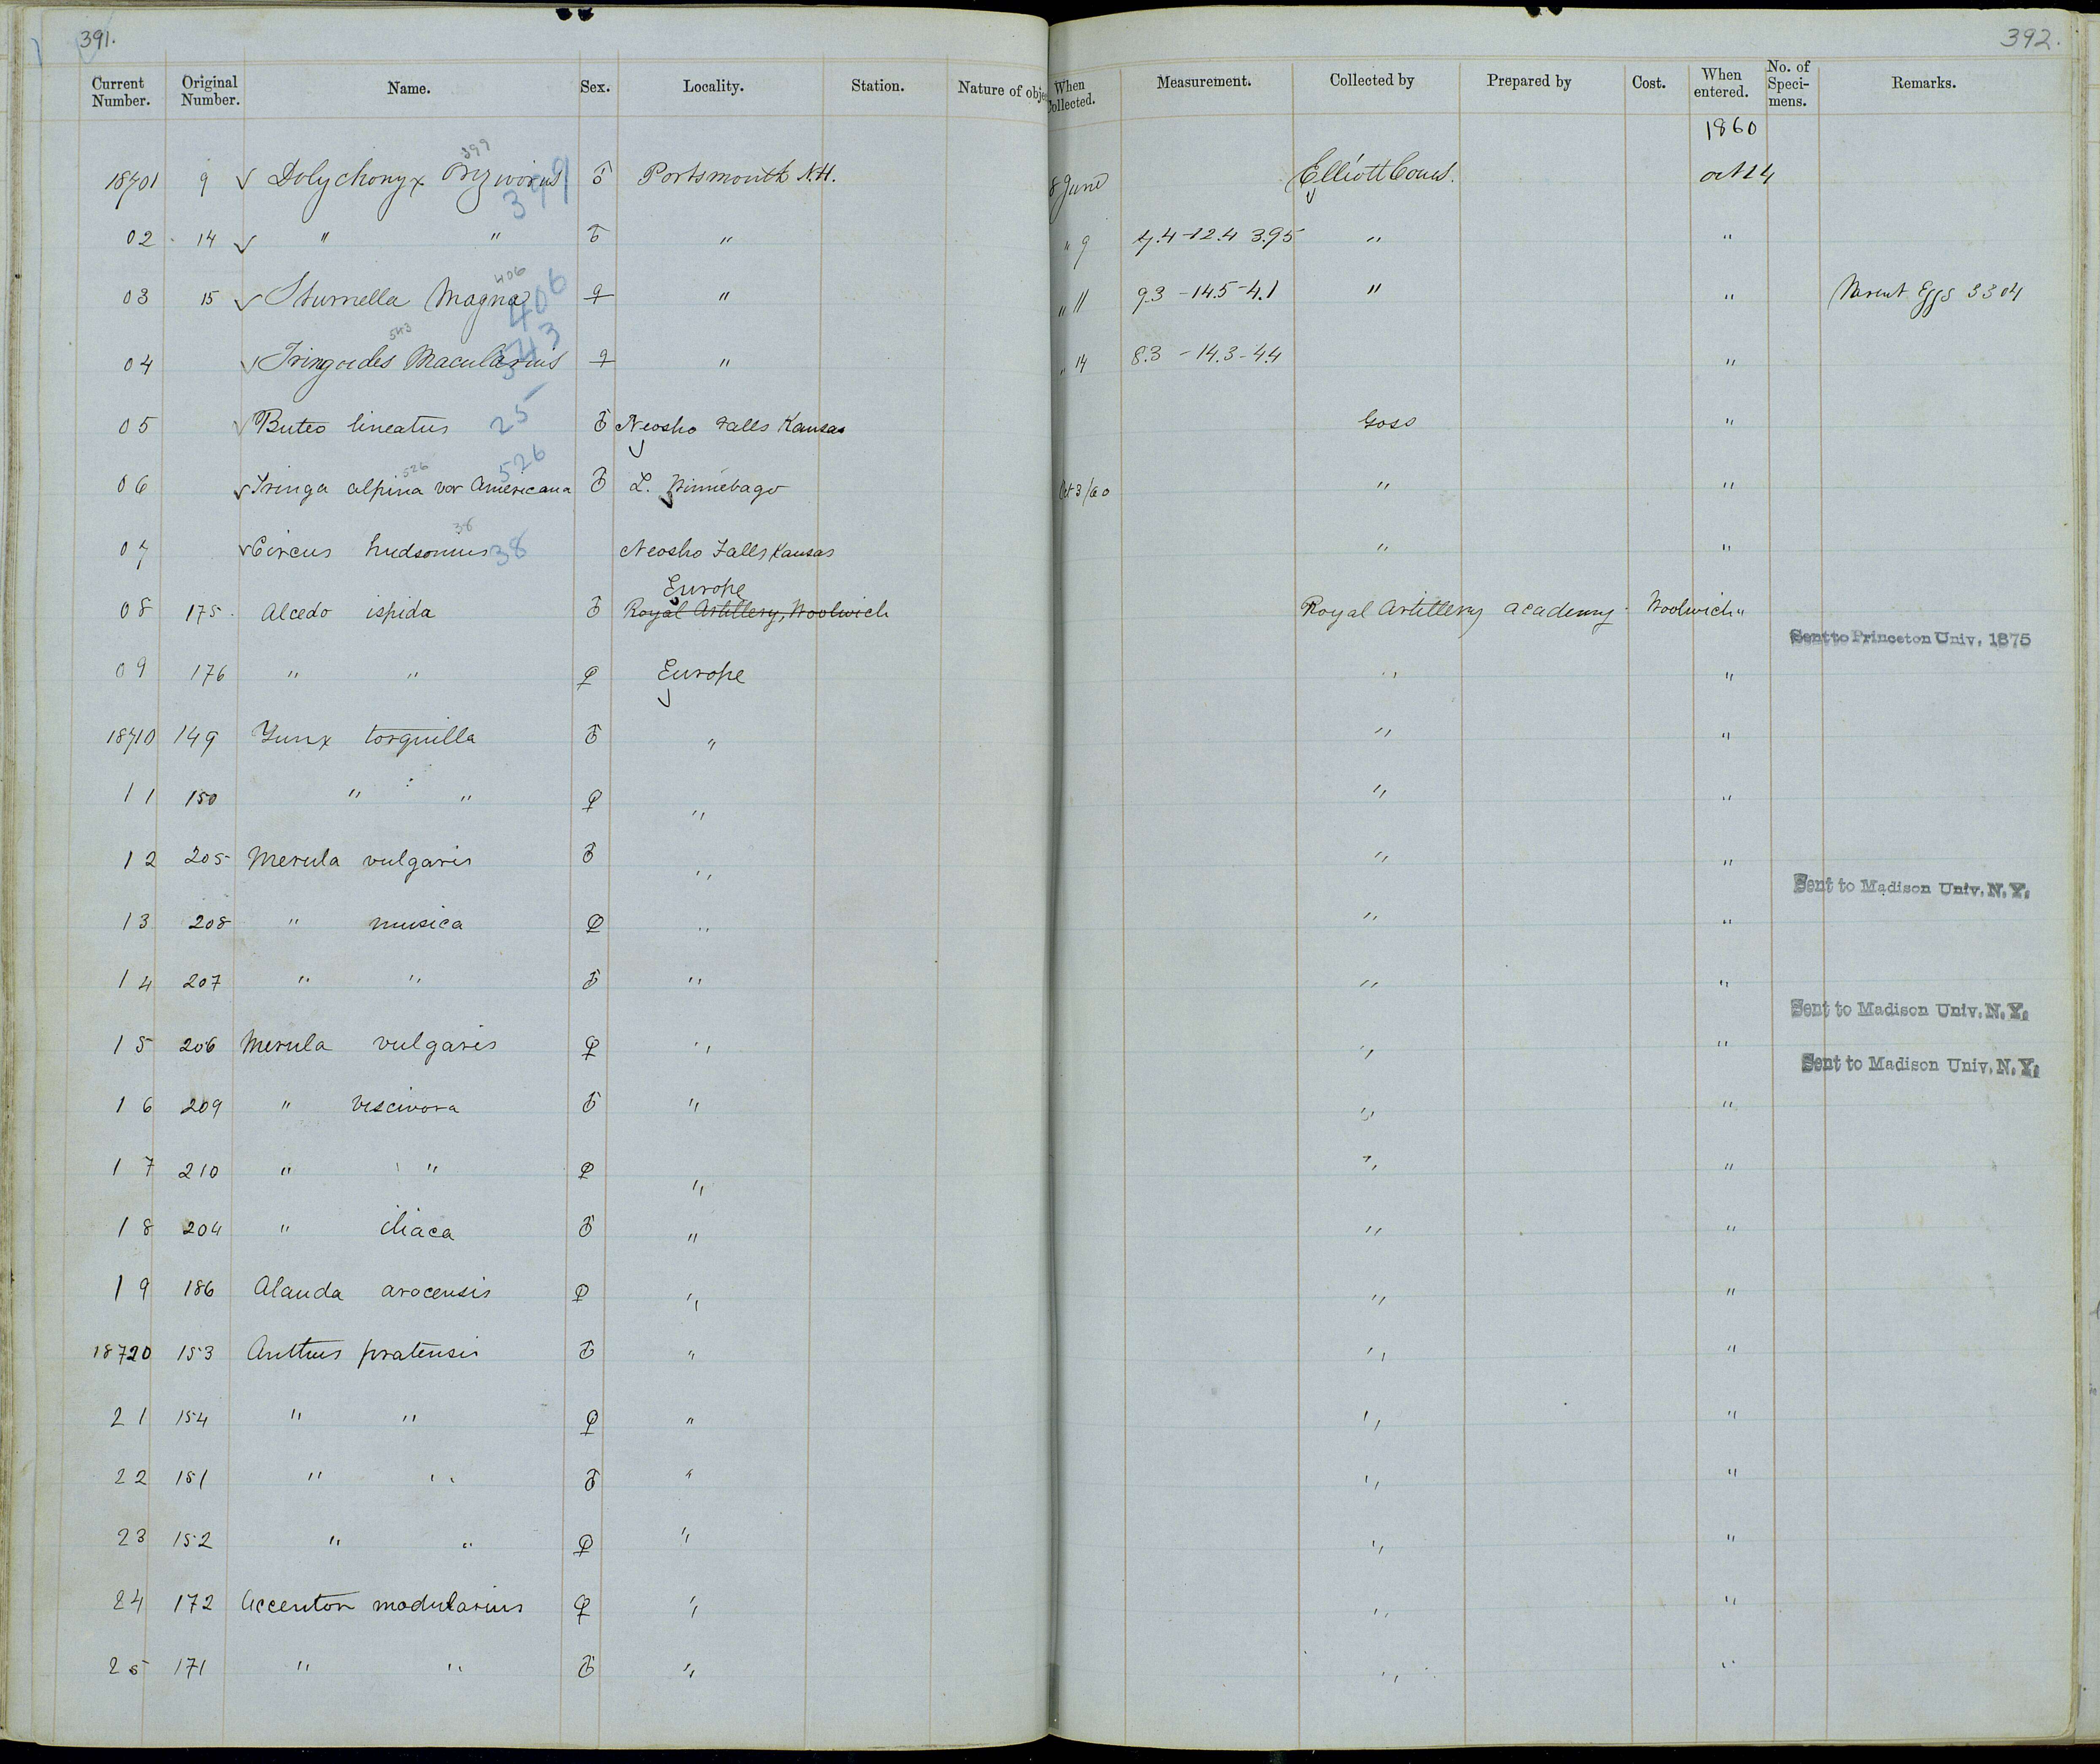 391. 392.
Current Number. Original Number. Name. Sex. Locality. Station. Nature of obje When Collected. Measurement. Collected by Prepared by Cost. When entered. No. of Speci-mens. Remarks.
1860
399
18701 9 ✓ Dolychonyx Orizivorus 399 ♂ Portsmouth N.H. 8 June Elliott Coues. Oct 24
02 14 ✓ " " ♂ " " 9 7.4-12.4 3.95 " "
406
03 15 ✓ Sturnella Magna 406 ♀ " " 11 9.3-14.5-4.1 " " Parent Eggs 3304
543
04 ✓ Tringoides Macularius 543 ♀ " " 14 8.3-14.3-4.4 "
05 ✓ Buteo lineatus 25 ♂ Neosho Falls Kansas Goss "
526
06 ✓ Tringa alpina var Americana 526 ♂ L. Winnebago Oct 3/60 " "
38
07 ✓ Circus hudsonius 38 Neosho Falls Kansas " "
Europe
08 175. Alcedo ispida ♂ Royal Artillery, Woolwich Royal Artillery academy. Woolwich "
Sent to Princeton Univ. 1875
09 176 " " ♀ Europe " "
18710 149 Yunx torquilla ♂ " " "
11 150 " " ♀ " " "
12 205 Merula vulgaris ♂ " " "
Sent to Madison Univ. N.Y.
13 208 " musica ♀ " " "
14 207 " " ♂ " " "
Sent to Madison Univ. N.Y.
15 206 Merula vulgaris ♀ " " "
Sent to Madison Univ. N.Y.
16 209 " Viscivora ♂ " " "
17 210 " " ♀ " " "
18 204 " iliaca ♂ " " "
19 186 Alauda arvensis ♀ " " "
18720 153 Anthus pratensis ♂ " " "
21 154 " " ♀ " " "
22 151 " " ♂ " " "
23 152 " " ♀ " " "
24 172 Accentor modularius ♀ " " "
25 171 " " ♂ " " "